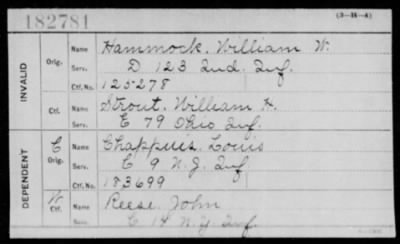 182781
(3-H-4)
INVALID
Orig. Name Hammock, William W.
Serv. D 123 Ind. Inf.
Ctf. No. 125278
Ctf. Name Strout, William H.
Serv. E 79 Ohio Inf.
DEPENDENT
C Orig. Name Chappuis, Louis
Serv. C 9 N.J. Inf
Ctf. No. 183699
Ctf. Name Reese, John
Serv. C 14 N.Y. Inf.